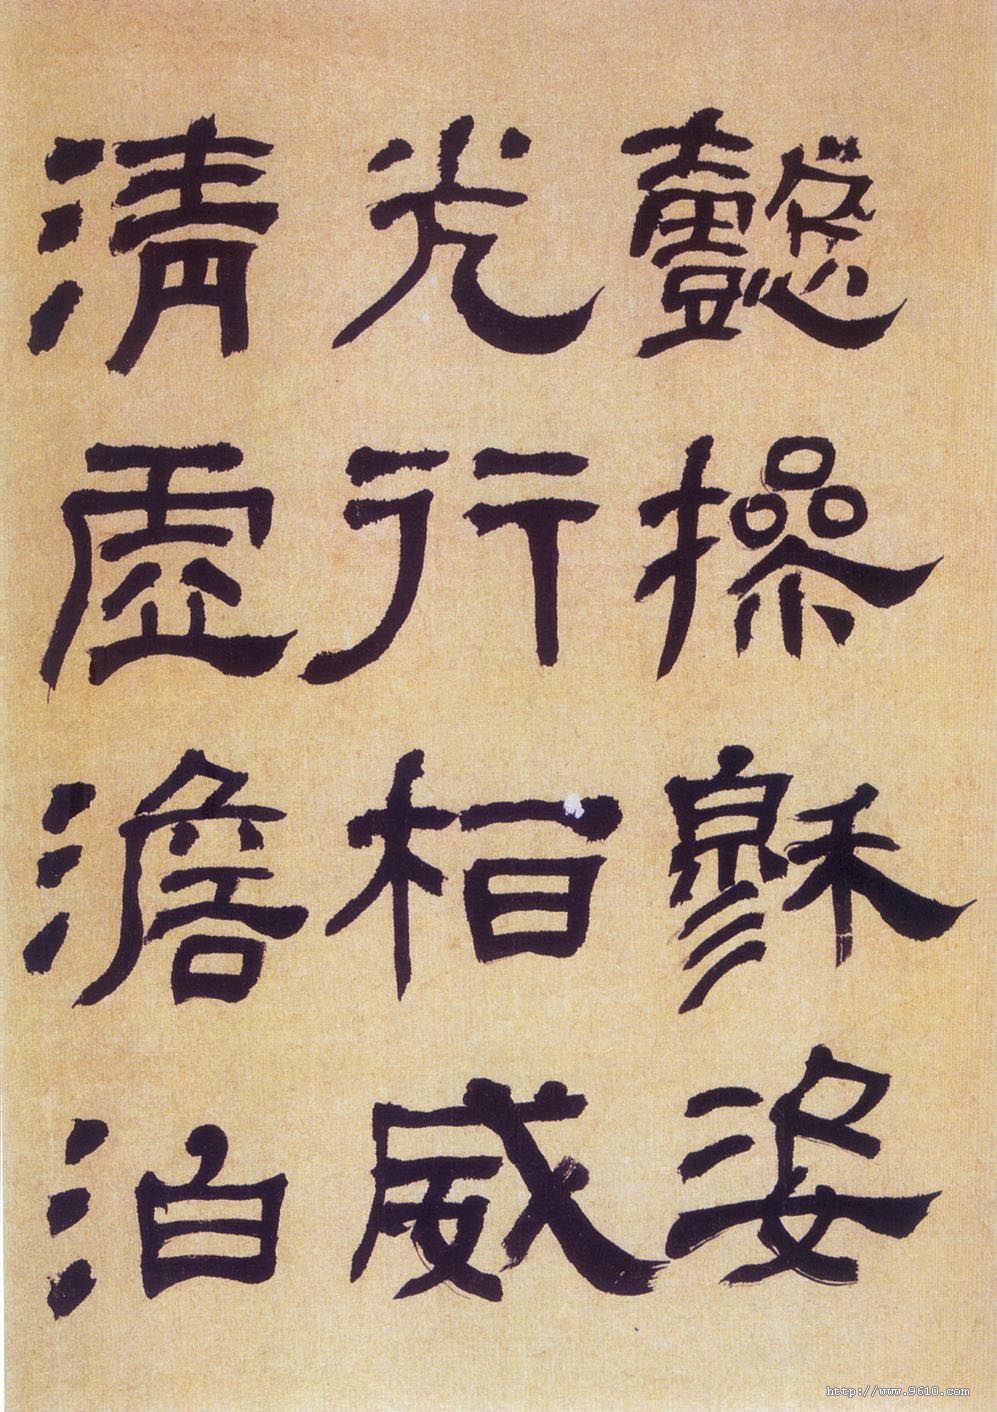 懿操穆姿
光行相威
清虚澹泊
http://www.9610.com